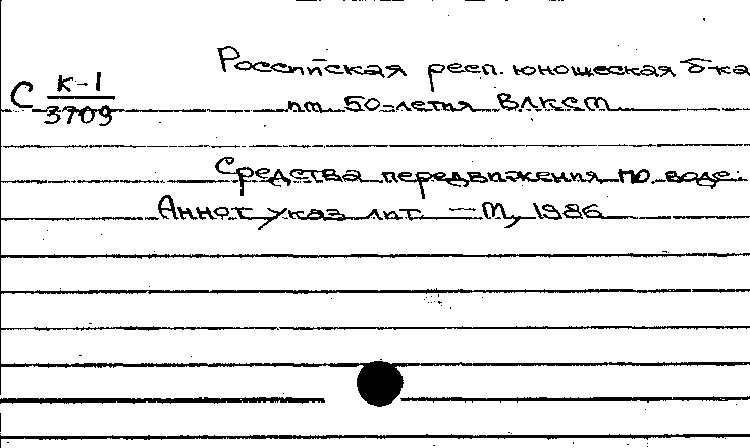 Российская респ. юношеская б-ка
С К-1
3709
им. 50-летия ВЛКСМ
Средства передвижения по воде:
Аннот. указ. лит. — М., 1986